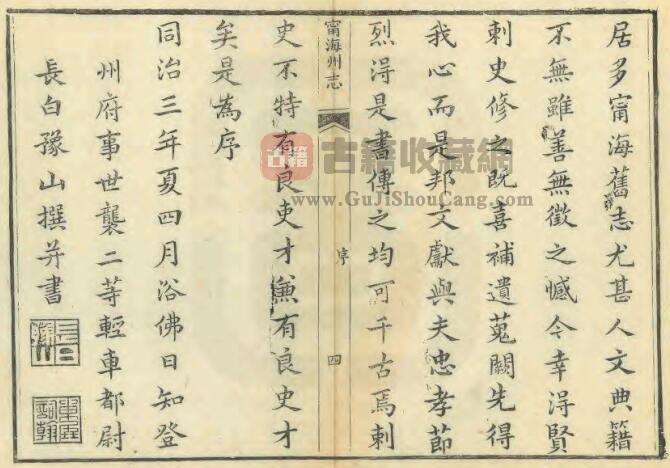 居多甯海舊志尤甚人文典籍
不無雖善無徵之憾今幸得賢
刺史修之既喜補遺蒐闕先得
我心而是邦文獻與夫忠孝節
烈得是書傳之均可千古焉刺
甯海州志
序
四
史不特有良吏才兼有良史才
矣是為序
同治三年夏四月浴佛日知登
州府事世襲二等輕車都尉
長白豫山撰并書
古籍
古籍收藏網
www.GuJiShouCang.com